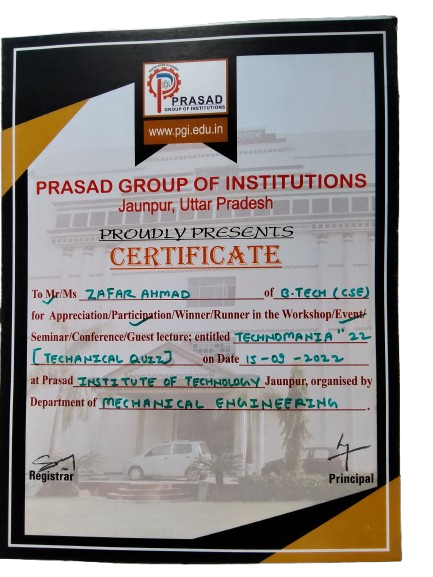 PRASAD
GROUP OF INSTITUTIONS
www.pgi.edu.in
PRASAD GROUP OF INSTITUTIONS
Jaunpur, Uttar Pradesh
PROUDLY PRESENTS
CERTIFICATE
To Mr/Ms ZAFAR AHMAD of B.TECH (CSE)
for Appreciation/Participation/Winner/Runner in the Workshop/Event/
Seminar/Conference/Guest lecture; entitled TECHNOMANIA" 22
[TECHANICAL QUIZ] on Date 15-09-2022
at Prasad INSTITUTE OF TECHNOLOGY Jaunpur, organised by
Department of MECHANICAL ENGINEERING.
Registrar
Principal